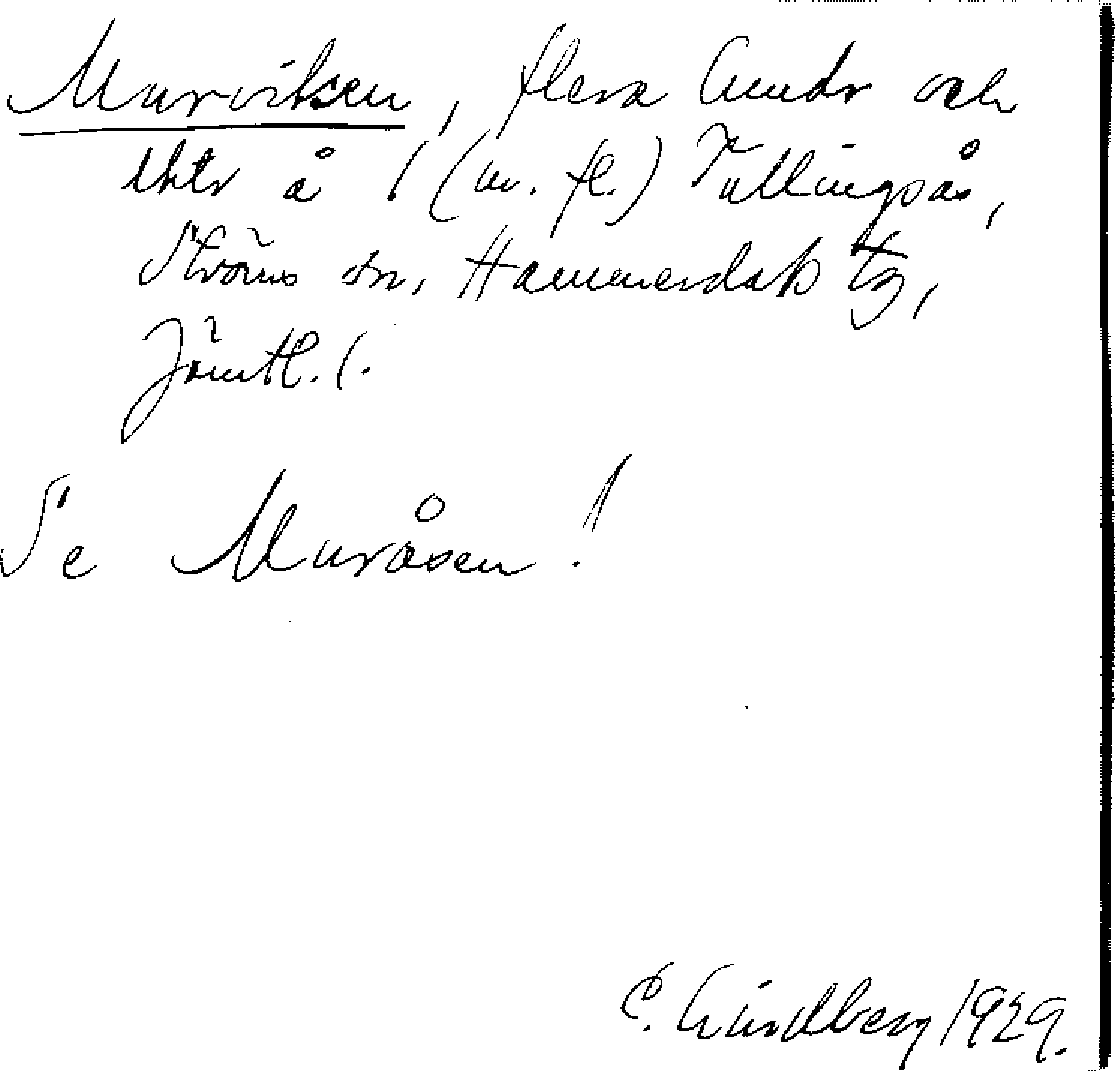 Murviken, flera och
lhtr å 1 (m. fl.) Tullingsås,
Ströms sn, Hammerdals tg,
Jämtl. l.
Se Muråsen!
C. Lindberg 1929.